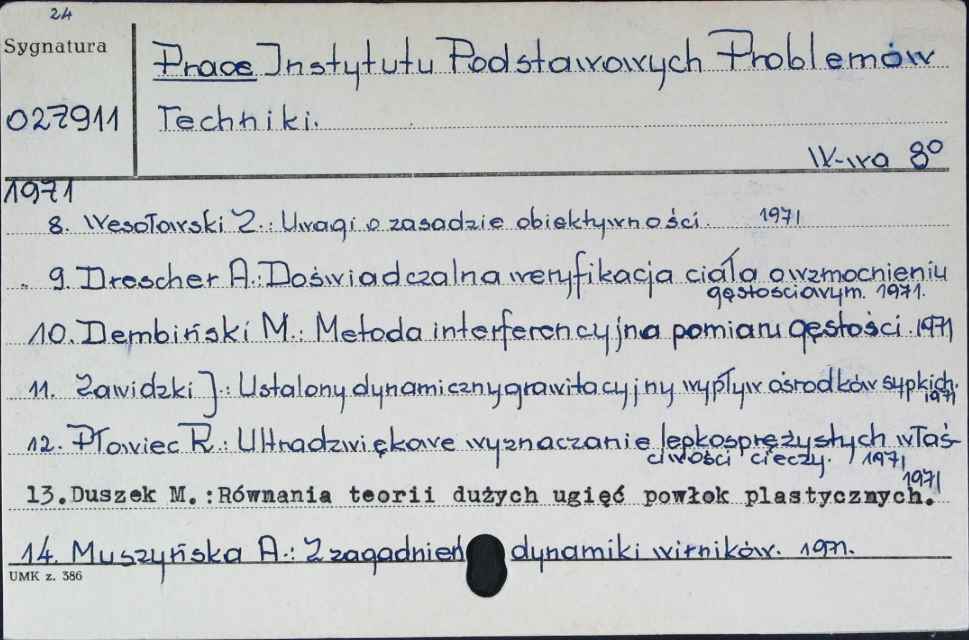 24
Sygnatura
Prace Instytutu Podstawowych Problemów
027911
Techniki.
W-wa 8°
1971
8. Wesołowski Z.: Uwagi o zasadzie obiektywności. 1971
9. Drescher A.: Doświadczalna weryfikacja ciała o wzmocnieniu
gęstościowym. 1971.
10. Dembiński M.: Metoda interferencyjna pomiaru gęstości. 1971
11. Zawidzki J.: Ustalony dynamiczny grawitacyjny wypływ ośrodków sypkich.
1971
12. Płowiec R.: Ultradzwiękowe wyznaczanie lepkosprężystych właś-
ciwości cieczy. 1971
1971
13.Duszek M.:Równania teorii dużych ugięć powłok plastycznych.
14. Muszyńska A.: Z zagadnień dynamiki wirników. 1971.
UMK z. 386